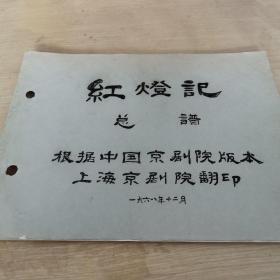 紅燈記
总譜
根据中国京剧院版本
上海京剧院翻印
一九六八年十二月